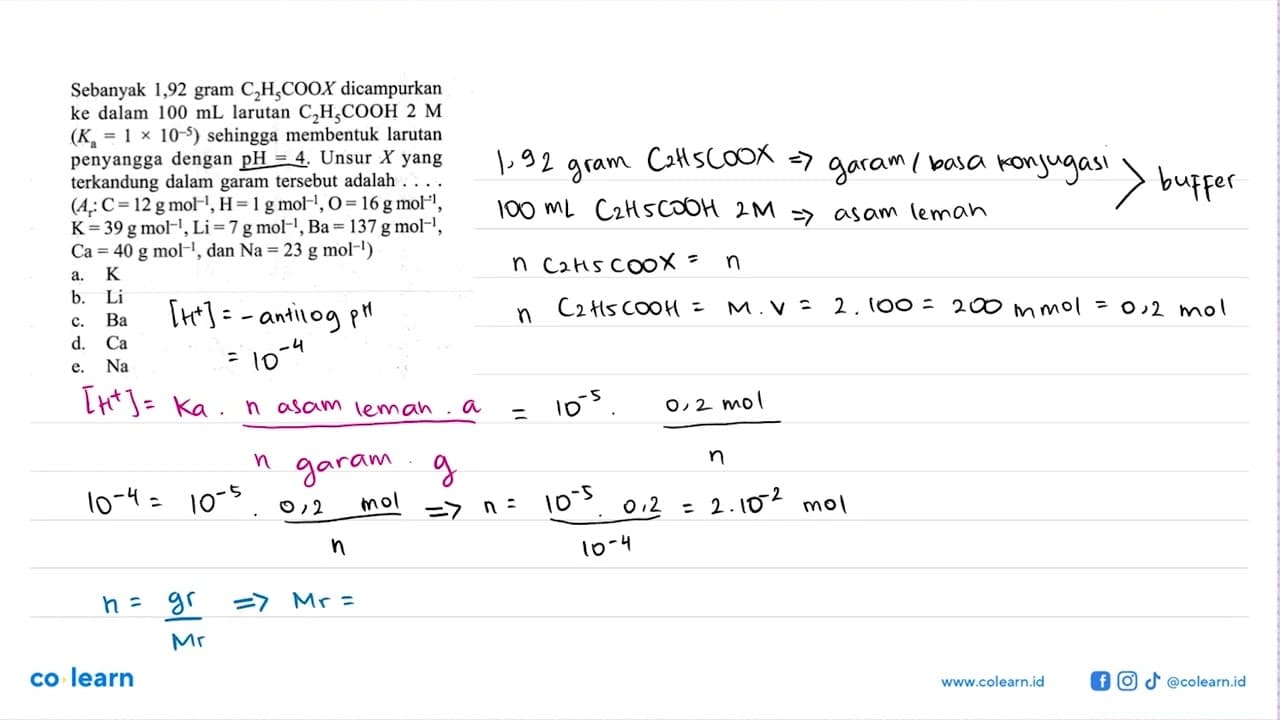 Sebanyak 1,92 gram C₂H₅COOX dicampurkan
ke dalam 100 mL larutan C₂H₅COOH 2 M
(Kₐ = 1 × 10⁻⁵) sehingga membentuk larutan
penyangga dengan pH = 4. Unsur X yang
terkandung dalam garam tersebut adalah . . . .
(Aᵣ: C = 12 g mol⁻¹, H = 1 g mol⁻¹, O = 16 g mol⁻¹,
K = 39 g mol⁻¹, Li = 7 g mol⁻¹, Ba = 137 g mol⁻¹,
Ca = 40 g mol⁻¹, dan Na = 23 g mol⁻¹)
a. K
b. Li
c. Ba
d. Ca
e. Na
1,92 gram C2H5COOX => garam / basa konjugasi
100 mL C2H5COOH 2M => asam lemah
> buffer
n C2H5COOX = n
n C2H5COOH = M . V = 2 . 100 = 200 mmol = 0,2 mol
[H⁺] = - antilog pH
= 10⁻⁴
[H⁺] = Ka . n asam lemah . a / n garam . g = 10⁻⁵ . 0,2 mol / n
10⁻⁴ = 10⁻⁵ . 0,2 mol / n => n = 10⁻⁵ . 0,2 / 10⁻⁴ = 2 . 10⁻² mol
n = gr / Mr => Mr =
co·learn
www.colearn.id
@colearn.id